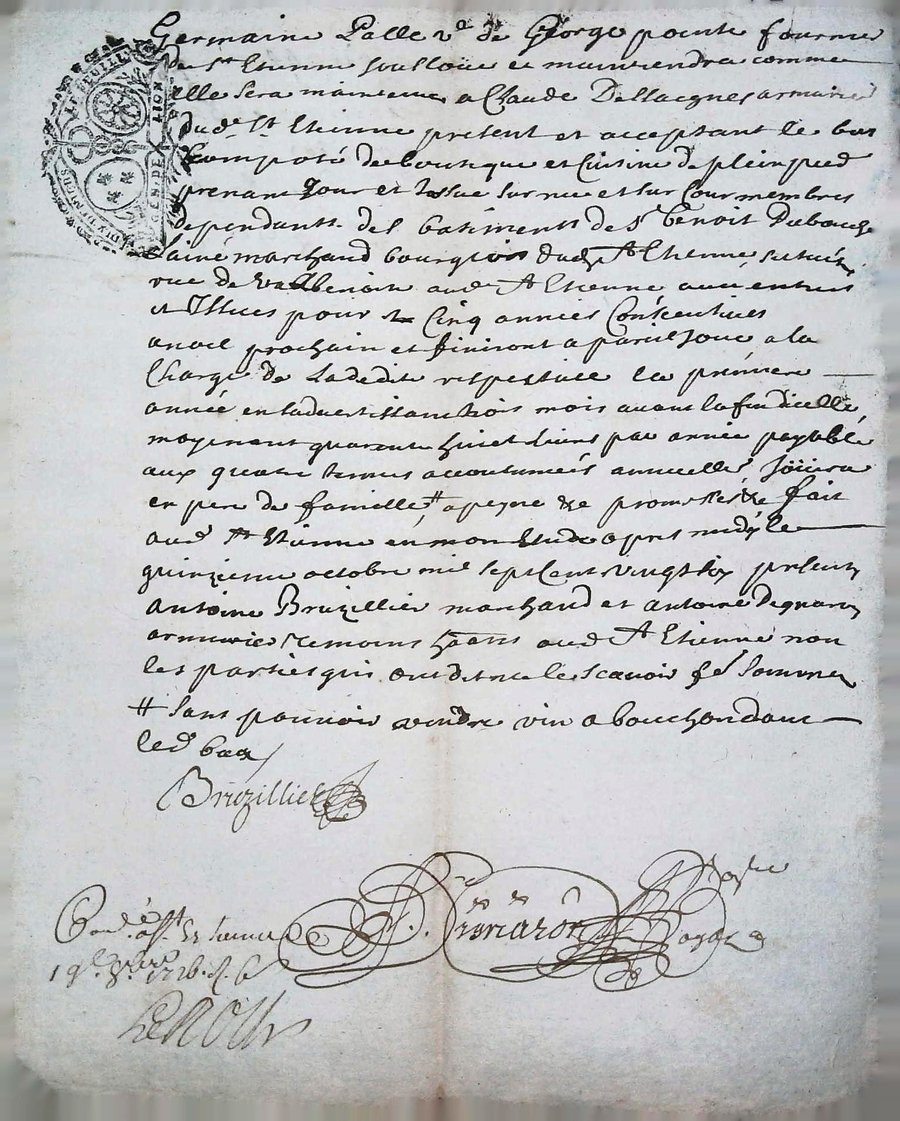 Germaine Palle v.ᵉ de George pointe fournier
de St Etienne soulloüe et maintendra comme
elle sera maintenue a Claude Dellacgnes armurier
dud.ᵗ St Etienne present et acceptant le bas
Composé de boutique et Cuisine de plein pied
prenant Jour et Issue sur rue et sur Cour membres
dependants des batiments de Sʳ benoit Dubouche
Lainé marchand bourgeois dud St Etienne, situés
rue de vallbenoite aud St Etienne avec entrées
et Issues pour Cinq années Consécutives
avril prochain et finiront a pareil Jour a la
Charge de la dedite respective la premiere
année en ladvertissant trois mois avant la fin dicelle
moyenant quarente huict livres par année payable
aux quatre termes accoutumés annuelle, Joüira
en pere de famille # a peyne &c promettes &c fait
aud St Etienne en mon Etude apres midy le
quinzieme octobre mil sept Cent vingt six presents
Antoine Bruzillier marchand et antoine Dignaron
armurier temoins hᵃᵇnts aud St Etienne non
les parties qui ont dit ne le Scavoir de ce Sommées
# Sans pouvoir vendre vin a bouchon dans
led bas
Bruzillier
A. Dignaron
Con.ˡᵉ a St Etienne
19ᵉ 8bre 1726. R. 6 s